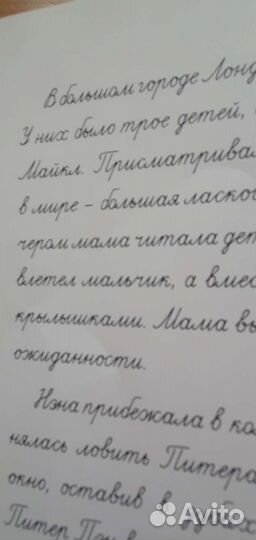 В большом городе Лонд
У них было трое детей,
Майкл. Присматривал
в мире – большая ласков
чером мама читала дет
влетел мальчик, а вмес
крылышками. Мама вы
ожиданности.
Нэна прибежала в ко
нялась ловить Питера
окно, оставив в зубах
Питер Пэн в
Avito